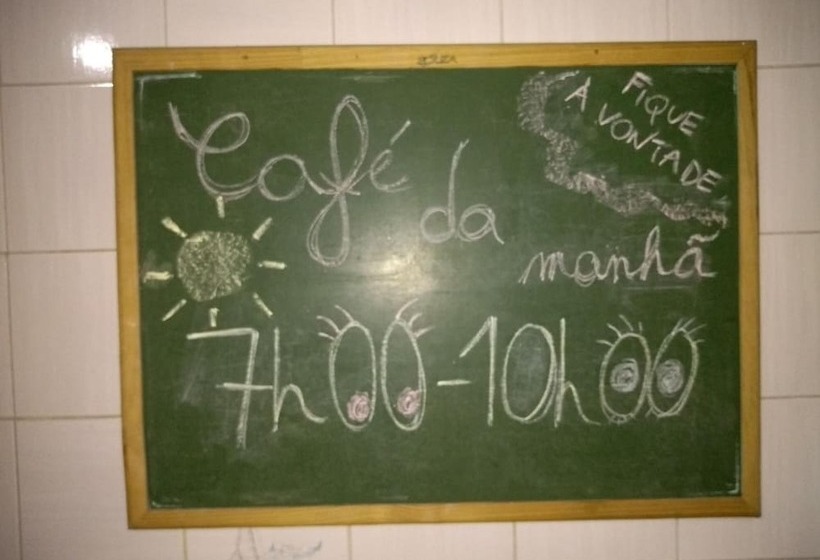 FIQUE
A VONTADE
Café
da
manhã
7h00-10h00